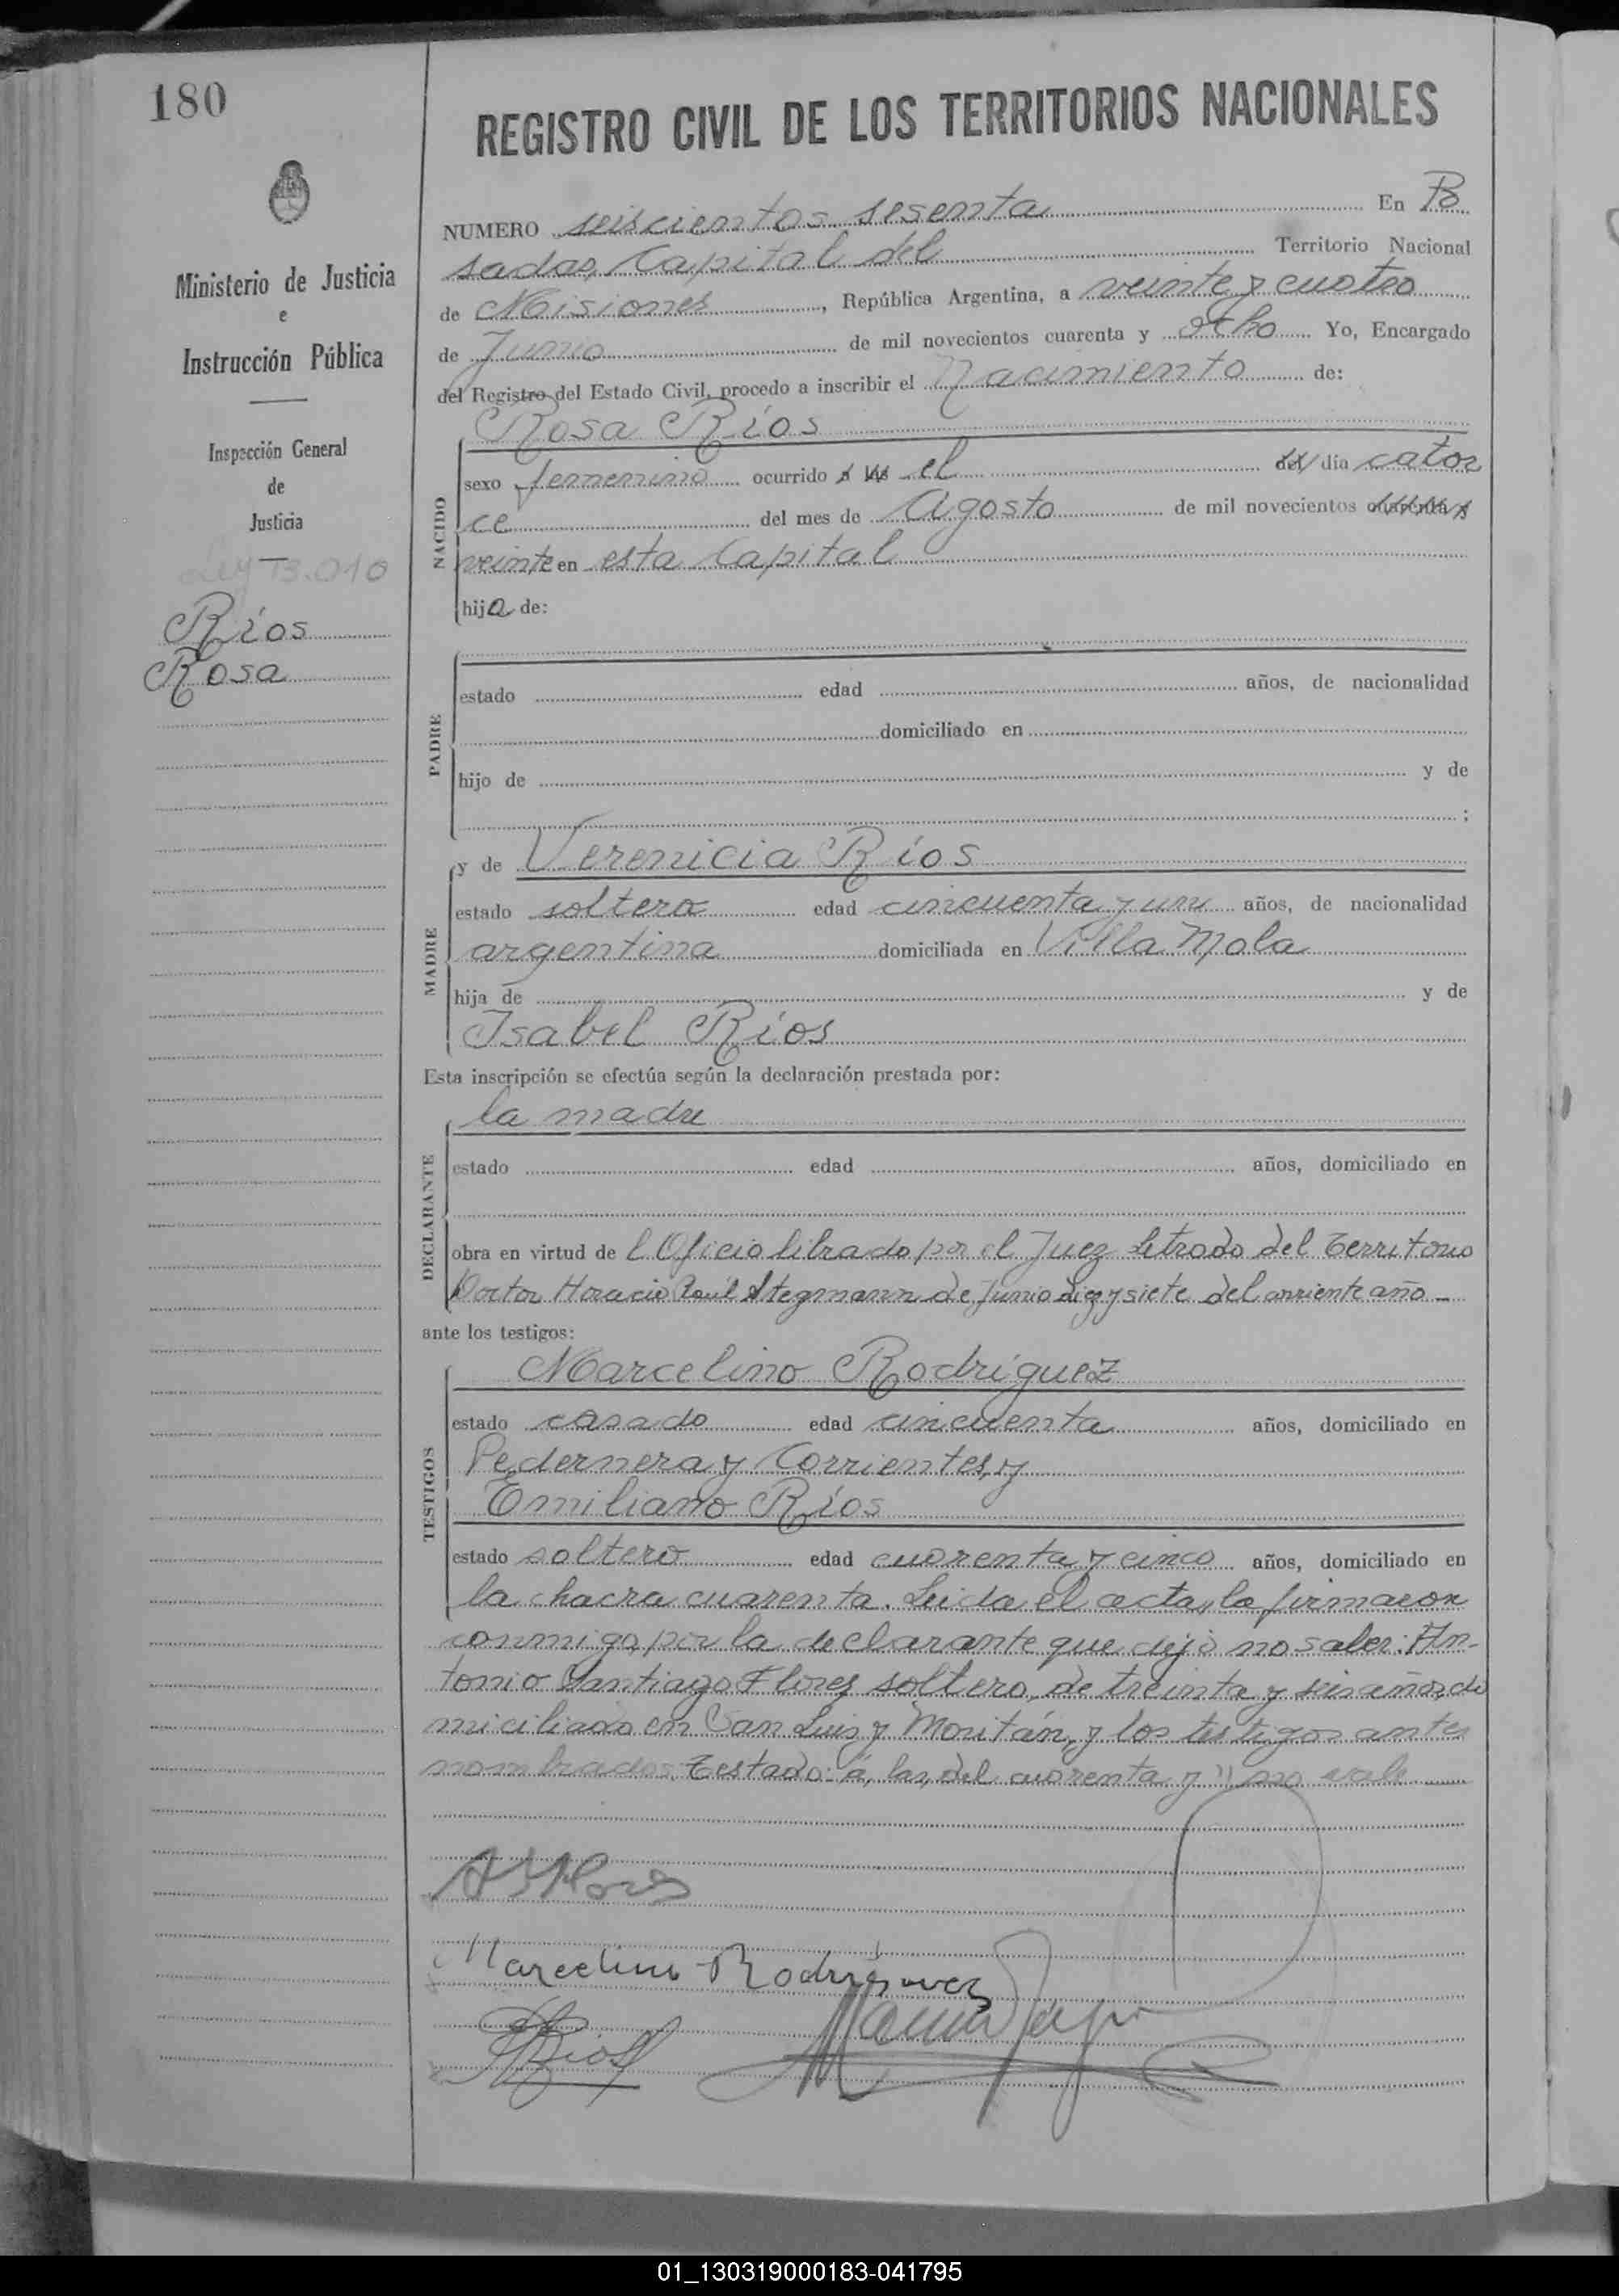 180
REGISTRO CIVIL DE LOS TERRITORIOS NACIONALES
Ministerio de Justicia
e
Instrucción Pública
Inspección General
de
Justicia
Ley 13.010
Ríos
Rosa
NUMERO seiscientos sesenta En Po
sadas, Capital del Territorio Nacional
de Misiones, República Argentina, a veinte y cuatro
de Junio de mil novecientos cuarenta y ocho Yo, Encargado
del Registro del Estado Civil, procedo a inscribir el Nacimiento de:
Rosa Ríos
NACIDO
sexo femenino ocurrido á las el del día cator
ce del mes de Agosto de mil novecientos cuarenta y
veinte en esta Capital
hija de:
PADRE
estado edad años, de nacionalidad
domiciliado en
hijo de y de
;
MADRE
y de Verenicia Ríos
estado soltera edad cincuenta y un años, de nacionalidad
argentina domiciliada en Villa Mola
hija de y de
Isabel Ríos
Esta inscripción se efectúa según la declaración prestada por:
DECLARANTE
la madre
estado edad años, domiciliado en
obra en virtud de l Oficio librado por el Juez letrado del Territorio
Doctor Horacio Raúl Stegmann de Junio diez y siete del corriente año
ante los testigos:
TESTIGOS
Marcelino Rodríguez
estado casado edad cincuenta años, domiciliado en
Pedernera y Corrientes, y
Emiliano Ríos
estado soltero edad cuarenta y cinco años, domiciliado en
la chacra cuarenta. Leida el acta, la firmaron
conmigo, por la declarante que dijo no saber: An-
tonio Santiago Flores soltero, de treinta y seis años, do
miciliado en San Luis y Moritán, y los testigos antes
nombrados. Testado: á, las, del cuarenta y" no vale
A S Flores
Marcelino Rodriguez
E Rios
01_130319000183-041795